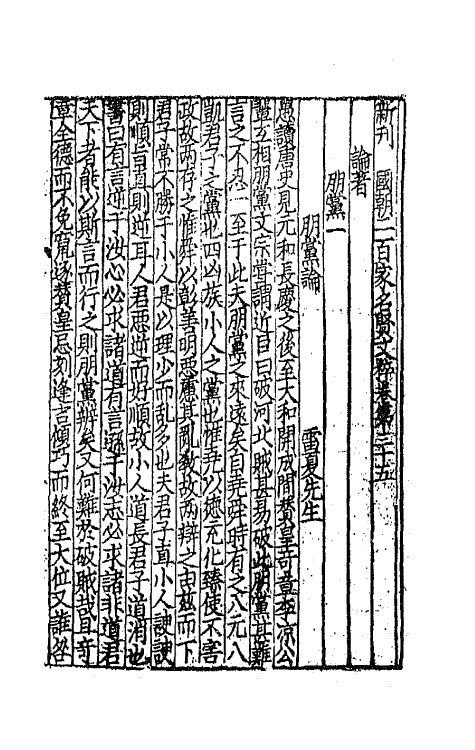 新刊國朝二百家名賢文粹卷第三十五
論著
朋黨一
朋黨論 重夏先生
愚讀唐史見元和長慶之後至大和開成間贊皇奇章李涼公
輩互相朋黨文宗嘗謂近臣曰破河北賊甚易破此朋黨甚難
言之不忍一至于此夫朋黨之來遠矣自堯舜時有之八元八
凱君子之黨也四凶族小人之黨也惟堯以德充化臻使不害
政故兩存之惟舜以彰善明惡慮其亂教故兩辯之由茲而下
君子常不勝于小人是以理少而亂多也夫君子直小人諛諛
則順旨直則逆耳人君惡逆而好順故小人道長君子道消也
書曰有言逆于汝心必求諸道有言遜于汝志必求諸非道君
天下者能以斯言而行之則朋黨辨矣又何難於破賊哉且奇
章全德而不免竄逐贊皇忌刻逢言傾巧而終至大位又誰咎